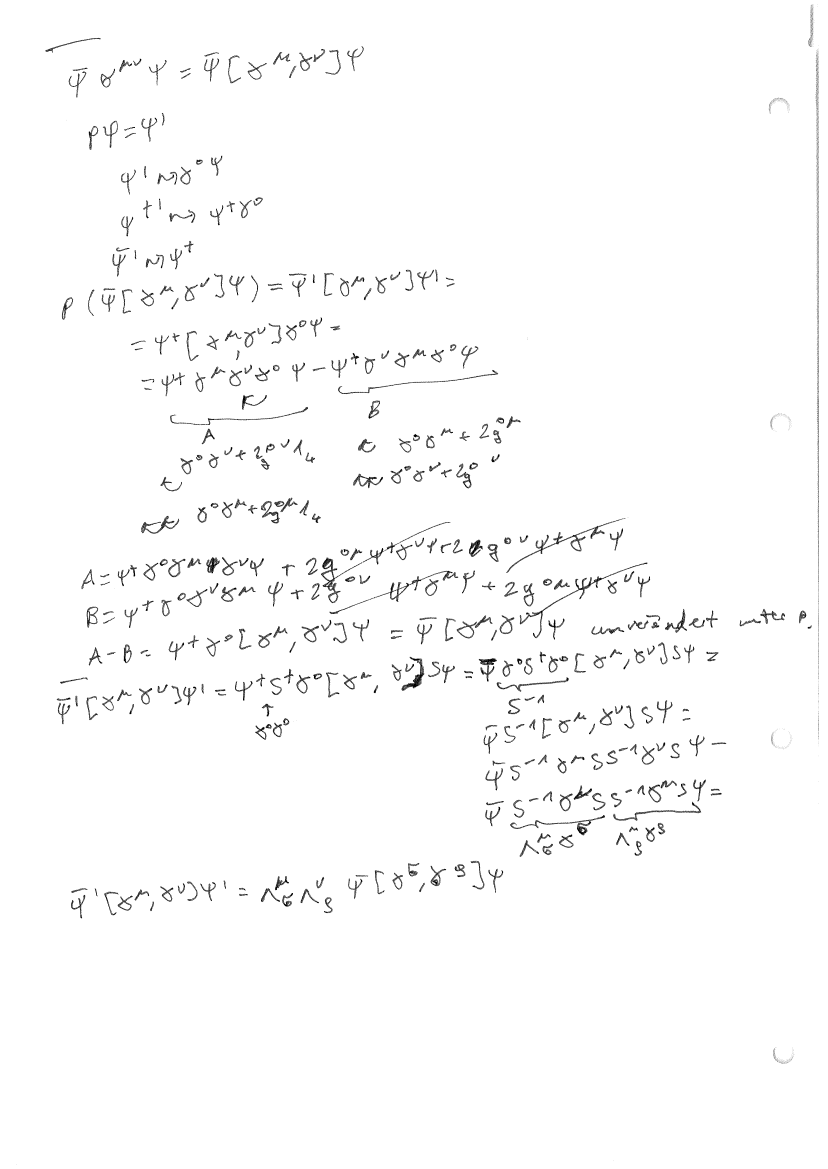 ψ̄ σ^{μν} ψ = ψ̄ [γ^μ, γ^ν] ψ
Pψ = ψ'
ψ' ⇝ γ⁰ψ
ψ^{†'} ⇝ ψ^†γ⁰
ψ̄' ⇝ ψ^†
P (ψ̄ [γ^μ, γ^ν] ψ) = ψ̄' [γ^μ, γ^ν] ψ' =
= ψ^† [γ^μ, γ^ν] γ⁰ψ =
= ψ^† γ^μ γ^ν γ⁰ ψ − ψ^† γ^ν γ^μ γ⁰ ψ
A B
γ⁰γ^ν + 2g^{0ν} 1₄ γ⁰γ^μ + 2g^{0μ}
γ⁰γ^μ + 2g^{0μ} 1₄ γ⁰γ^ν + 2g^{0ν}
A = ψ^† γ⁰ γ^μ γ^ν ψ + 2g^{0μ} ψ^† γ^ν ψ + 2g^{0ν} ψ^† γ^μ ψ
B = ψ^† γ⁰ γ^ν γ^μ ψ + 2g^{0ν} ψ^† γ^μ ψ + 2g^{0μ} ψ^† γ^ν ψ
A−B = ψ^† γ⁰ [γ^μ, γ^ν] ψ = ψ̄ [γ^μ, γ^ν] ψ unverändert unter P.
ψ̄' [γ^μ, γ^ν] ψ' = ψ^† S^† γ⁰ [γ^μ, γ^ν] Sψ = ψ̄ γ⁰S^†γ⁰ [γ^μ, γ^ν] Sψ =
↑ S^{-1}
γ⁰γ⁰
ψ̄ S^{-1} [γ^μ, γ^ν] S ψ =
ψ̄ S^{-1} γ^μ S S^{-1} γ^ν S ψ −
ψ̄ S^{-1} γ^ν S S^{-1} γ^μ S ψ =
Λ^μ_σ γ^σ Λ^μ_ρ γ^ρ
ψ̄' [γ^μ, γ^ν] ψ' = Λ^μ_σ Λ^ν_ρ ψ̄ [γ^σ, γ^ρ] ψ